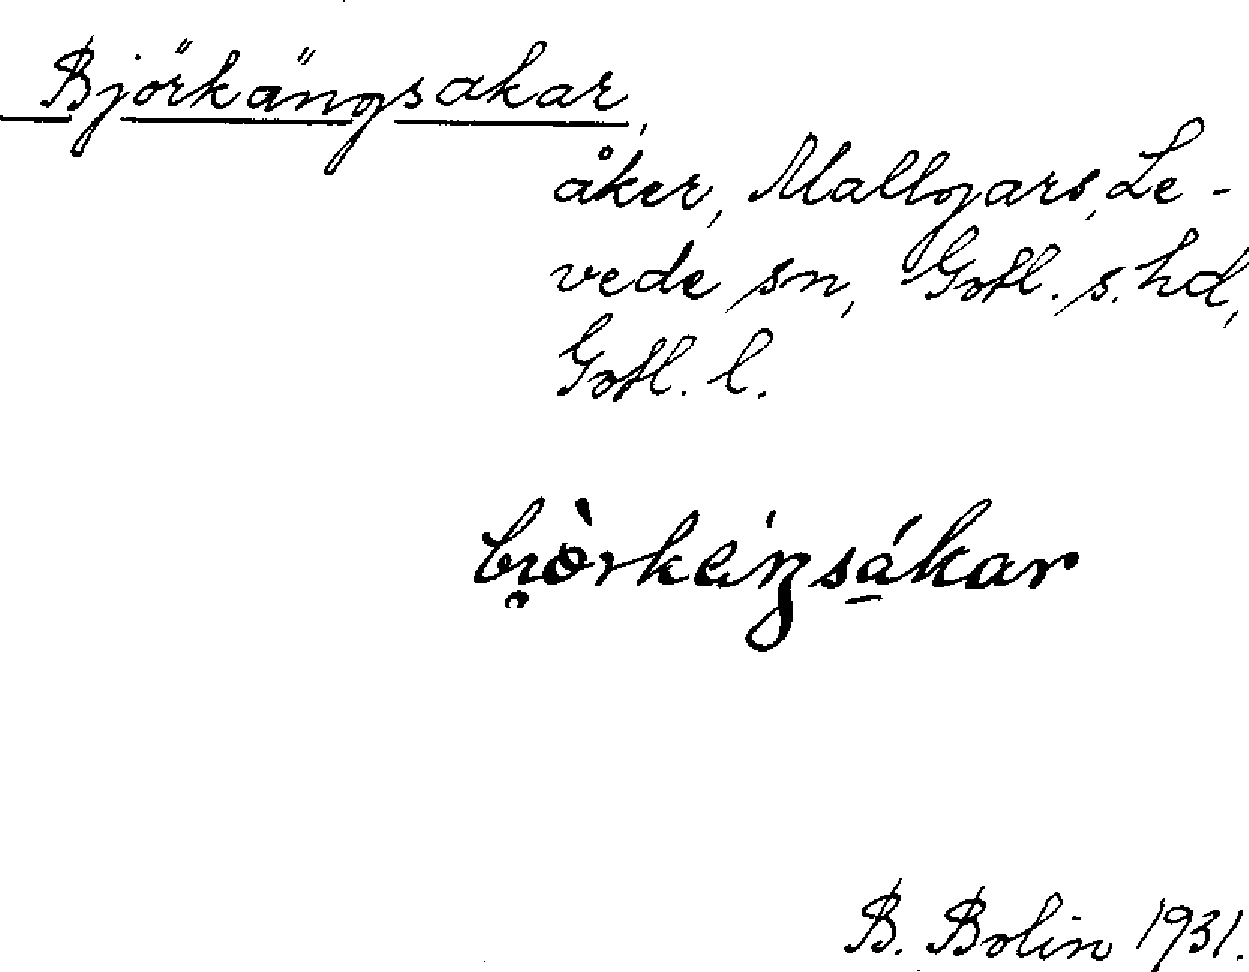 Björkängsakar,
åker, Mallgars, Le-
vede sn, Gotl. s. hd,
Gotl. l.
B. Bolin 1931.